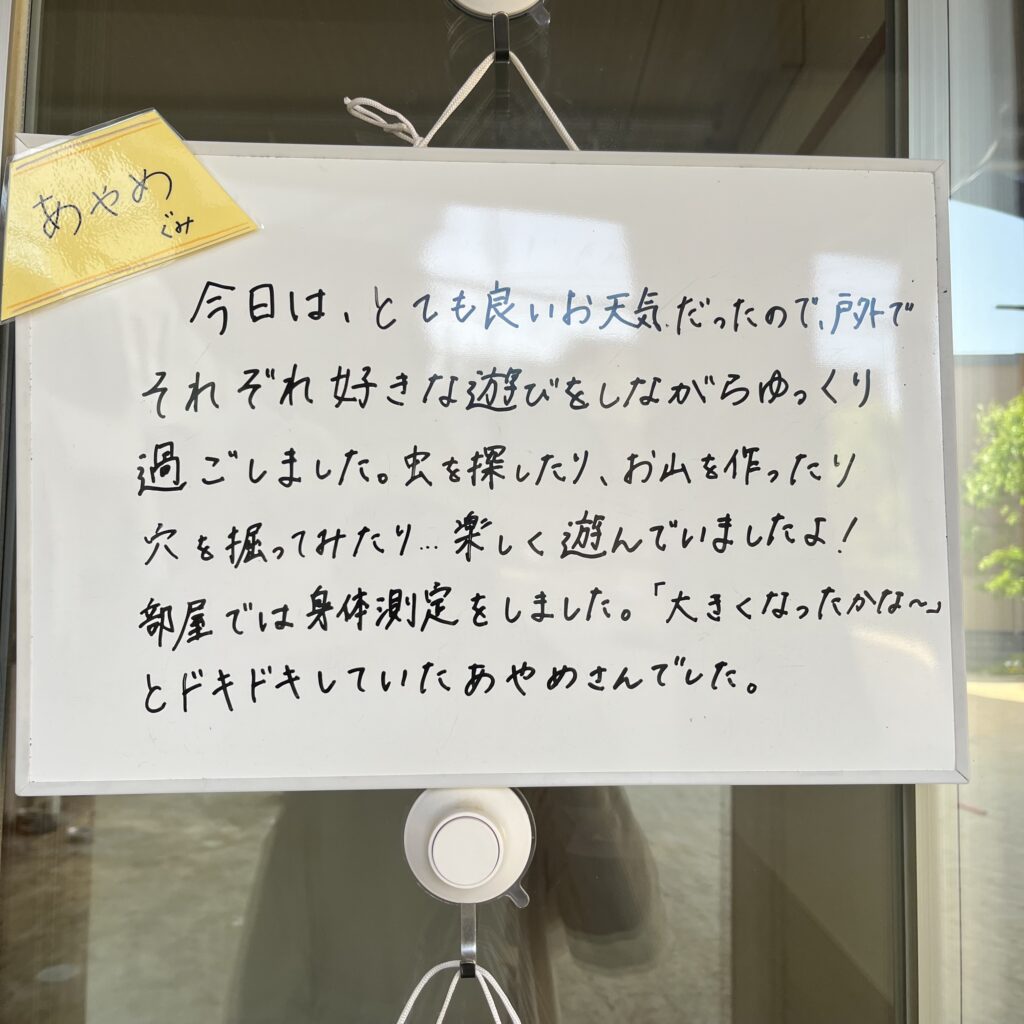 あやめ
ぐみ
今日は、とても良いお天気だったので、戸外で
それぞれ好きな遊びをしながらゆっくり
過ごしました。虫を探したり、お山を作ったり
穴を掘ってみたり…楽しく遊んでいましたよ!
部屋では身体測定をしました。「大きくなったかな〜」
とドキドキしていたあやめさんでした。